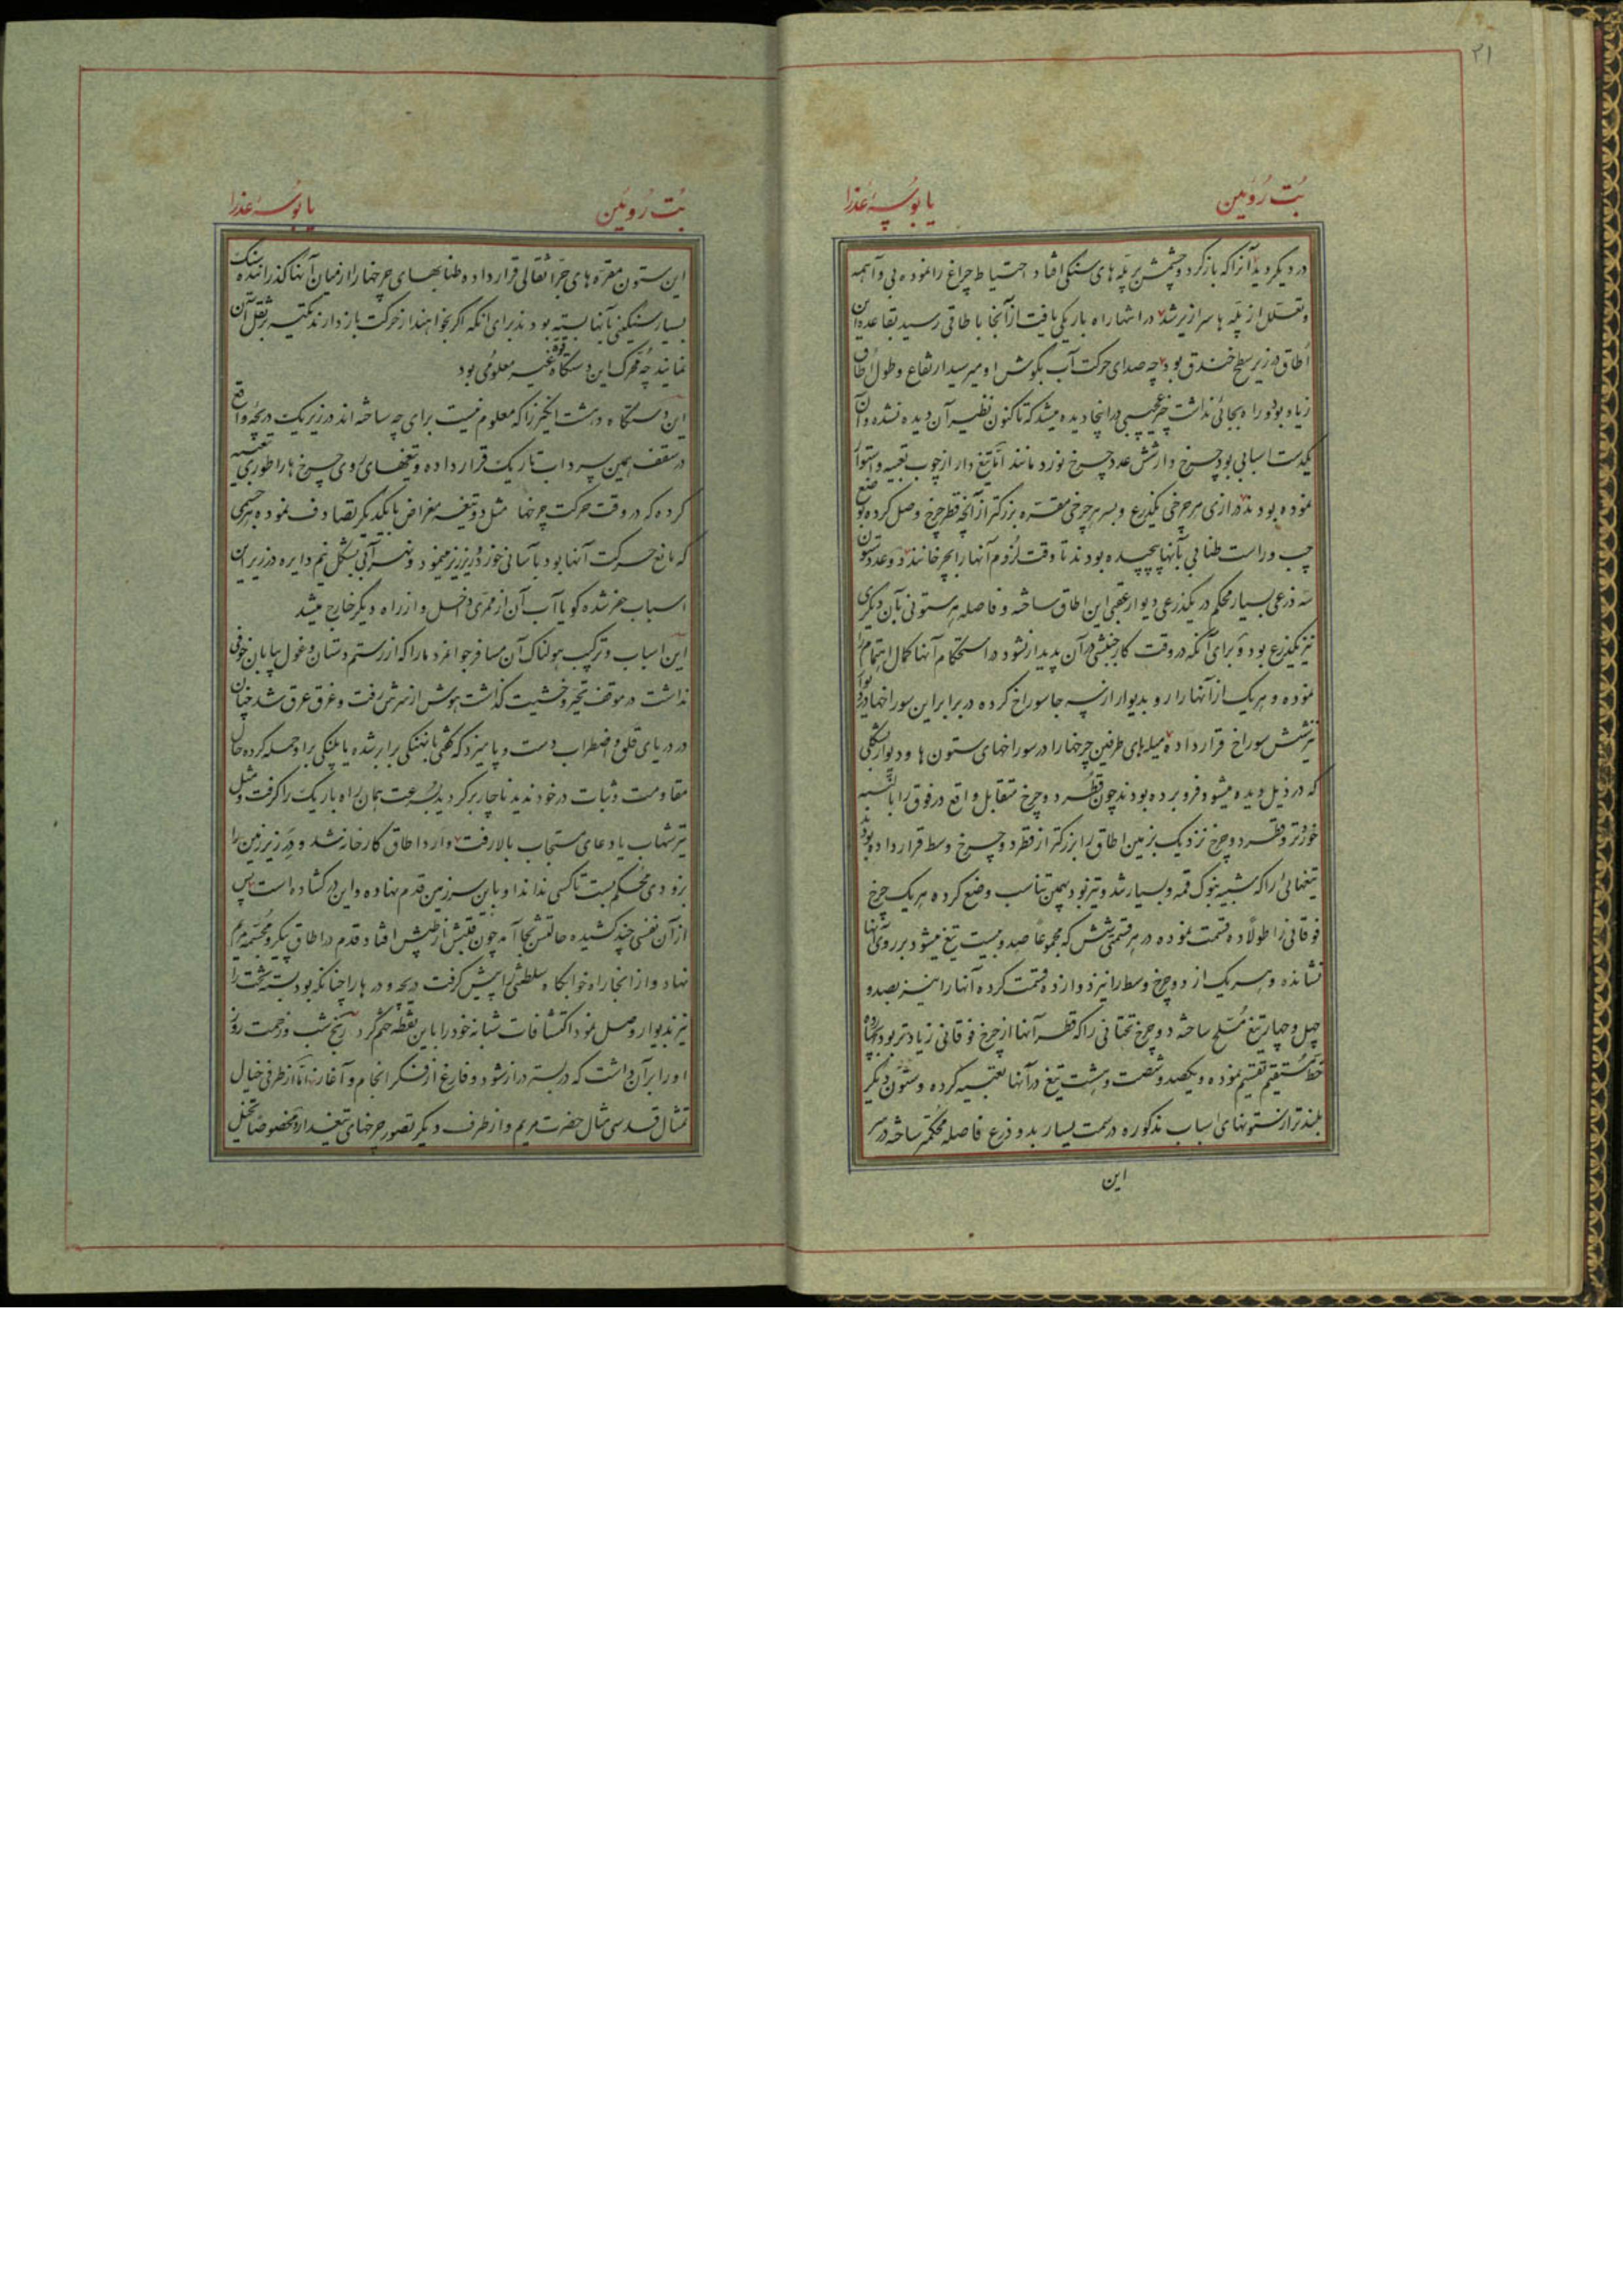 ۲۱
بُت رُوئین یا بوسهٔ عذرا
در دیگر دید آنرا که باز کرد و چشمش بر پله های سنگی افتاد احتیاط چراغ را نموده بی واهمه
و تعلل از پله ها سرازیر شد در انتها راه باریکی یافت از آنجا با طاقی رسید بقاعده این
اُطاق در زیر سطح خندق بود چه صدای حرکت آب بگوش او میرسید ارتفاع و طول اُطاق
زیاد بود و راه بجائی نداشت چیز عجیبی در انجا دیده میشد که تاکنون نظیر آن دیده نشده و آن
یکدست اسبابی بود چرخ وار شش عدد چرخ نورد مانند امّا تیغ دار از چوب تعبیه و استوار
نموده بودند درازی هر چرخی یکذرع و بسر هر چرخی مقرّه بزرگتر از آنچه قطر چرخ وصل کرده
چپ و راست طنابی بآنها پیچیده بودند تا وقت لُزوم آنها را بچرخانند دو عدد ستون
سه ذرعی بسیار محکم در یکذرعی دیوار عقبی این اطاق ساخته و فاصله هر ستونی بآن دیگری
نیز یکذرع بود و برای آنکه در وقت کار جنبشی در آن پدیدار نشود در استحکام آنها کمال اهتمام را
نموده و هر یک از آنها را رو بدیوار از سه جا سوراخ کرده در برابر این سوراخها دیوار را
نیز شش سوراخ قرار داده میله های طرفین چرخها را در سوراخهای ستون ها و دیوار بشکلی
که در ذیل دیده میشود فرو برده بودند چون قُطر دو چرخ متقابل واقع در فوق را بالنسبه
خوردتر و قطر دو چرخ نزدیک بزمین اطاق را بزرگتر از قطر دو چرخ وسط قرار داده بودند
تیغهائی را که شبیه بنوک قمه و بسیار تند و تیز بود بهمین تناسب وضع کرده هر یک چرخ
فوقانی را طولاً ده قسمت نموده در هر قسمتی شش که مجموعاً صد و بیست تیغ میشود بر روی آنها
نشانده و هر یک از دو چرخ وسط را نیز دوازده قسمت کرده آنها را نیز بصد و
چهل و چهار تیغ مُسلّح ساخته دو چرخ تحتانی را که قطر آنها از چرخ فوقانی زیادتر بود بچهارده
خط مستقیم تقسیم نموده و یکصد و شصت و هشت تیغ در آنها تعبیه کرده و ستون دیگر
بلندتر از ستونهای اسباب مذکوره در سمت یسار بدو ذرع فاصله محکم ساخته در سر
این
بُت رُوئین یا بوسهٔ عذرا
این ستون مقرّه های جرّ اثقالی قرار داده و طنابهای چرخها را از میان آنها گذرانیده سنگ
بسیار سنگینی بآنها بسته بودند برای آنکه اگر بخواهند از حرکت باز دارند تکیه بر ثقل آن
نمایند چه محرک این دستگاه قوه غیر معلومی بود
این دستگاه دهشت انگیز را که معلوم نیست برای چه ساخته اند در زیر یک دریچهٔ واقع
در سقف همین سرداب تاریک قرار داده و تیغهای روی چرخ ها را طوری تعبیه
کرده که در وقت حرکت چرخها مثل دو تیغه مقراض با یکدیگر تصادف نموده هر جسمی
که مانع حرکت آنها بود بآسانی خورد و ریز ریز مینمود و نهر آبی بشکل نیم دایره در زیر این
اسباب حفر شده گویا آب آن از ممرّی داخل و از راه دیگر خارج میشد
این اسباب و ترکیب هولناک آن مسافر جوانمرد ما را که از رستم دستان و غول بیابان خوفی
نداشت در موقف تحیّر و خشیت گذاشت هوش از سرش رفت و غرق عرق شد چنان
در دریای قلق و اضطراب دست و پا میزد که گفتی با نهنگی برابر شده یا پلنگی براو حمله کرده حال
مقاومت و ثبات در خود ندید ناچار برگردید بسرعت همان راه باریک را گرفت و مثل
تیر شهاب یا دعای مستجاب بالا رفت وارد اطاق کارخانه شد و در زیر زمین را
بزودی محکم بست تا کسی نداند او باین سرزمین قدم نهاده و این در گشاده است پس
از آن نفسی چند کشیده حالتش بجا آمد چون قلبش از طپش افتاد قدم در اطاق پیکر و مجسّمه مریم
نهاد و از انجا راه خوابگاه سلطنتی را پیش گرفت دریچه و درها را چنانکه بود بسته تخت را
نیز بدیوار وصل نمود اکتشافات شبانه خود را باین نقطه ختم کرد رنج شب و زحمت روز
او را بر آن داشت که در بستر دراز شود و فارغ از فکر انجام و آغاز اما از طرفی خیال
تمثال قدسی مثال حضرت مریم و از طرف دیگر تصور چرخهای تیغدار و مخصوصاً تخیل